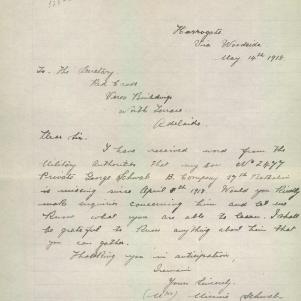 Harrogate
Via Woodside
May 14th 1918
To The Secretary
Red Cross
Verco Buildings
North Terrace
Adelaide
Dear Sir.
I have received word from the
Military Authorities that my son No 2477
Private George Schwab B. Company 27th Battalion
is missing since April 8th 1918. Would you kindly
make enquiries concerning him and let us
know what you are able to learn. I shall
be grateful to know anything about him that
you can gather.
Thanking you in anticipation,
I remain
Yours Sincerely.
(Mrs) Minnie Schwab